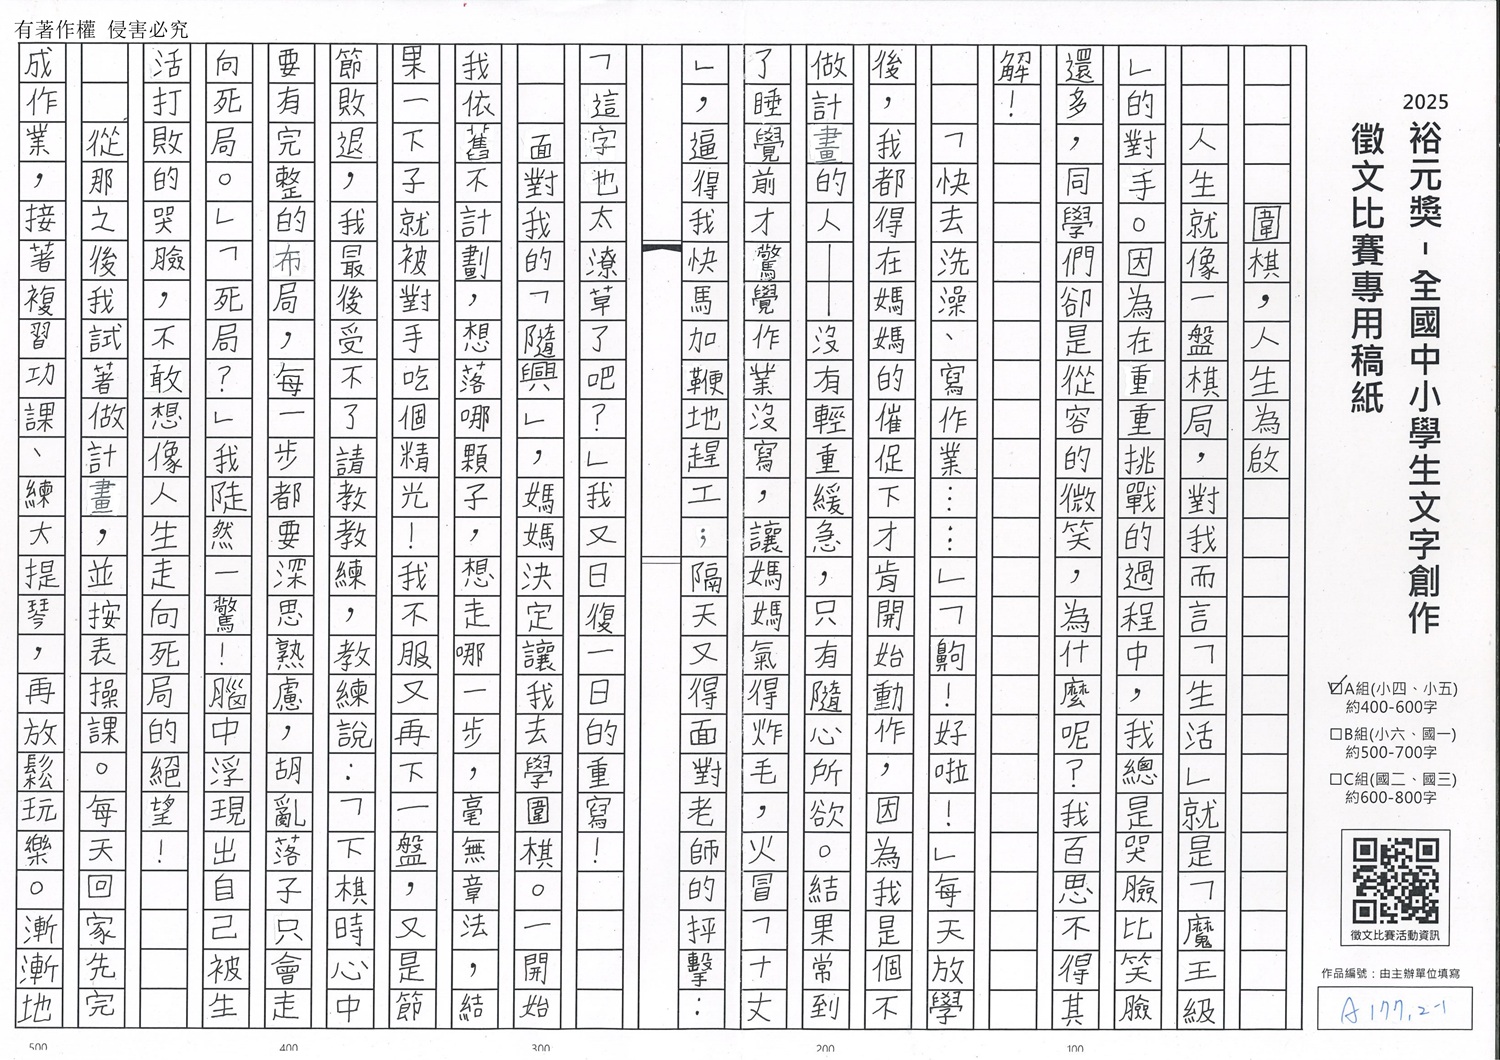 有著作權 侵害必究
2025 裕元獎-全國中小學生文字創作
徵文比賽專用稿紙
☑A組(小四、小五)
約400-600字
□B組(小六、國一)
約500-700字
□C組(國二、國三)
約600-800字
徵文比賽活動資訊
作品編號：由主辦單位填寫
A177,2-1
圍棋，人生為啟
人生就像一盤棋局，對我而言「生活」就是「魔王級
」的對手。因為在重重挑戰的過程中，我總是哭臉比笑臉
還多，同學們卻是從容的微笑，為什麼呢？我百思不得其
解！
「快去洗澡、寫作業……」「齁！好啦！」每天放學
後，我都得在媽媽的催促下才肯開始動作，因為我是個不
做計畫的人——沒有輕重緩急，只有隨心所欲。結果常到
了睡覺前才驚覺作業沒寫，讓媽媽氣得炸毛，火冒「十丈
」，逼得我快馬加鞭地趕工；隔天又得面對老師的抨擊：
「這字也太潦草了吧？」我又日復一日的重寫！
面對我的「隨興」，媽媽決定讓我去學圍棋。一開始
我依舊不計劃，想落哪顆子，想走哪一步，毫無章法，結
果一下子就被對手吃個精光！我不服又再下一盤，又是節
節敗退，我最後受不了請教教練，教練說：「下棋時心中
要有完整的布局，每一步都要深思熟慮，胡亂落子只會走
向死局。」「死局？」我陡然一驚！腦中浮現出自己被生
活打敗的哭臉，不敢想像人生走向死局的絕望！
從那之後我試著做計畫，並按表操課。每天回家先完
成作業，接著複習功課、練大提琴，再放鬆玩樂。漸漸地
100
200
300
400
500